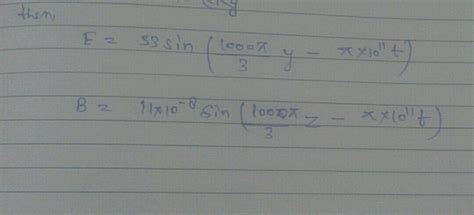 then,
E = 53 sin (1000π/3 y - π×10¹¹t)
B = 11×10⁻⁸ sin (1000π/3 z - π×10¹¹t)